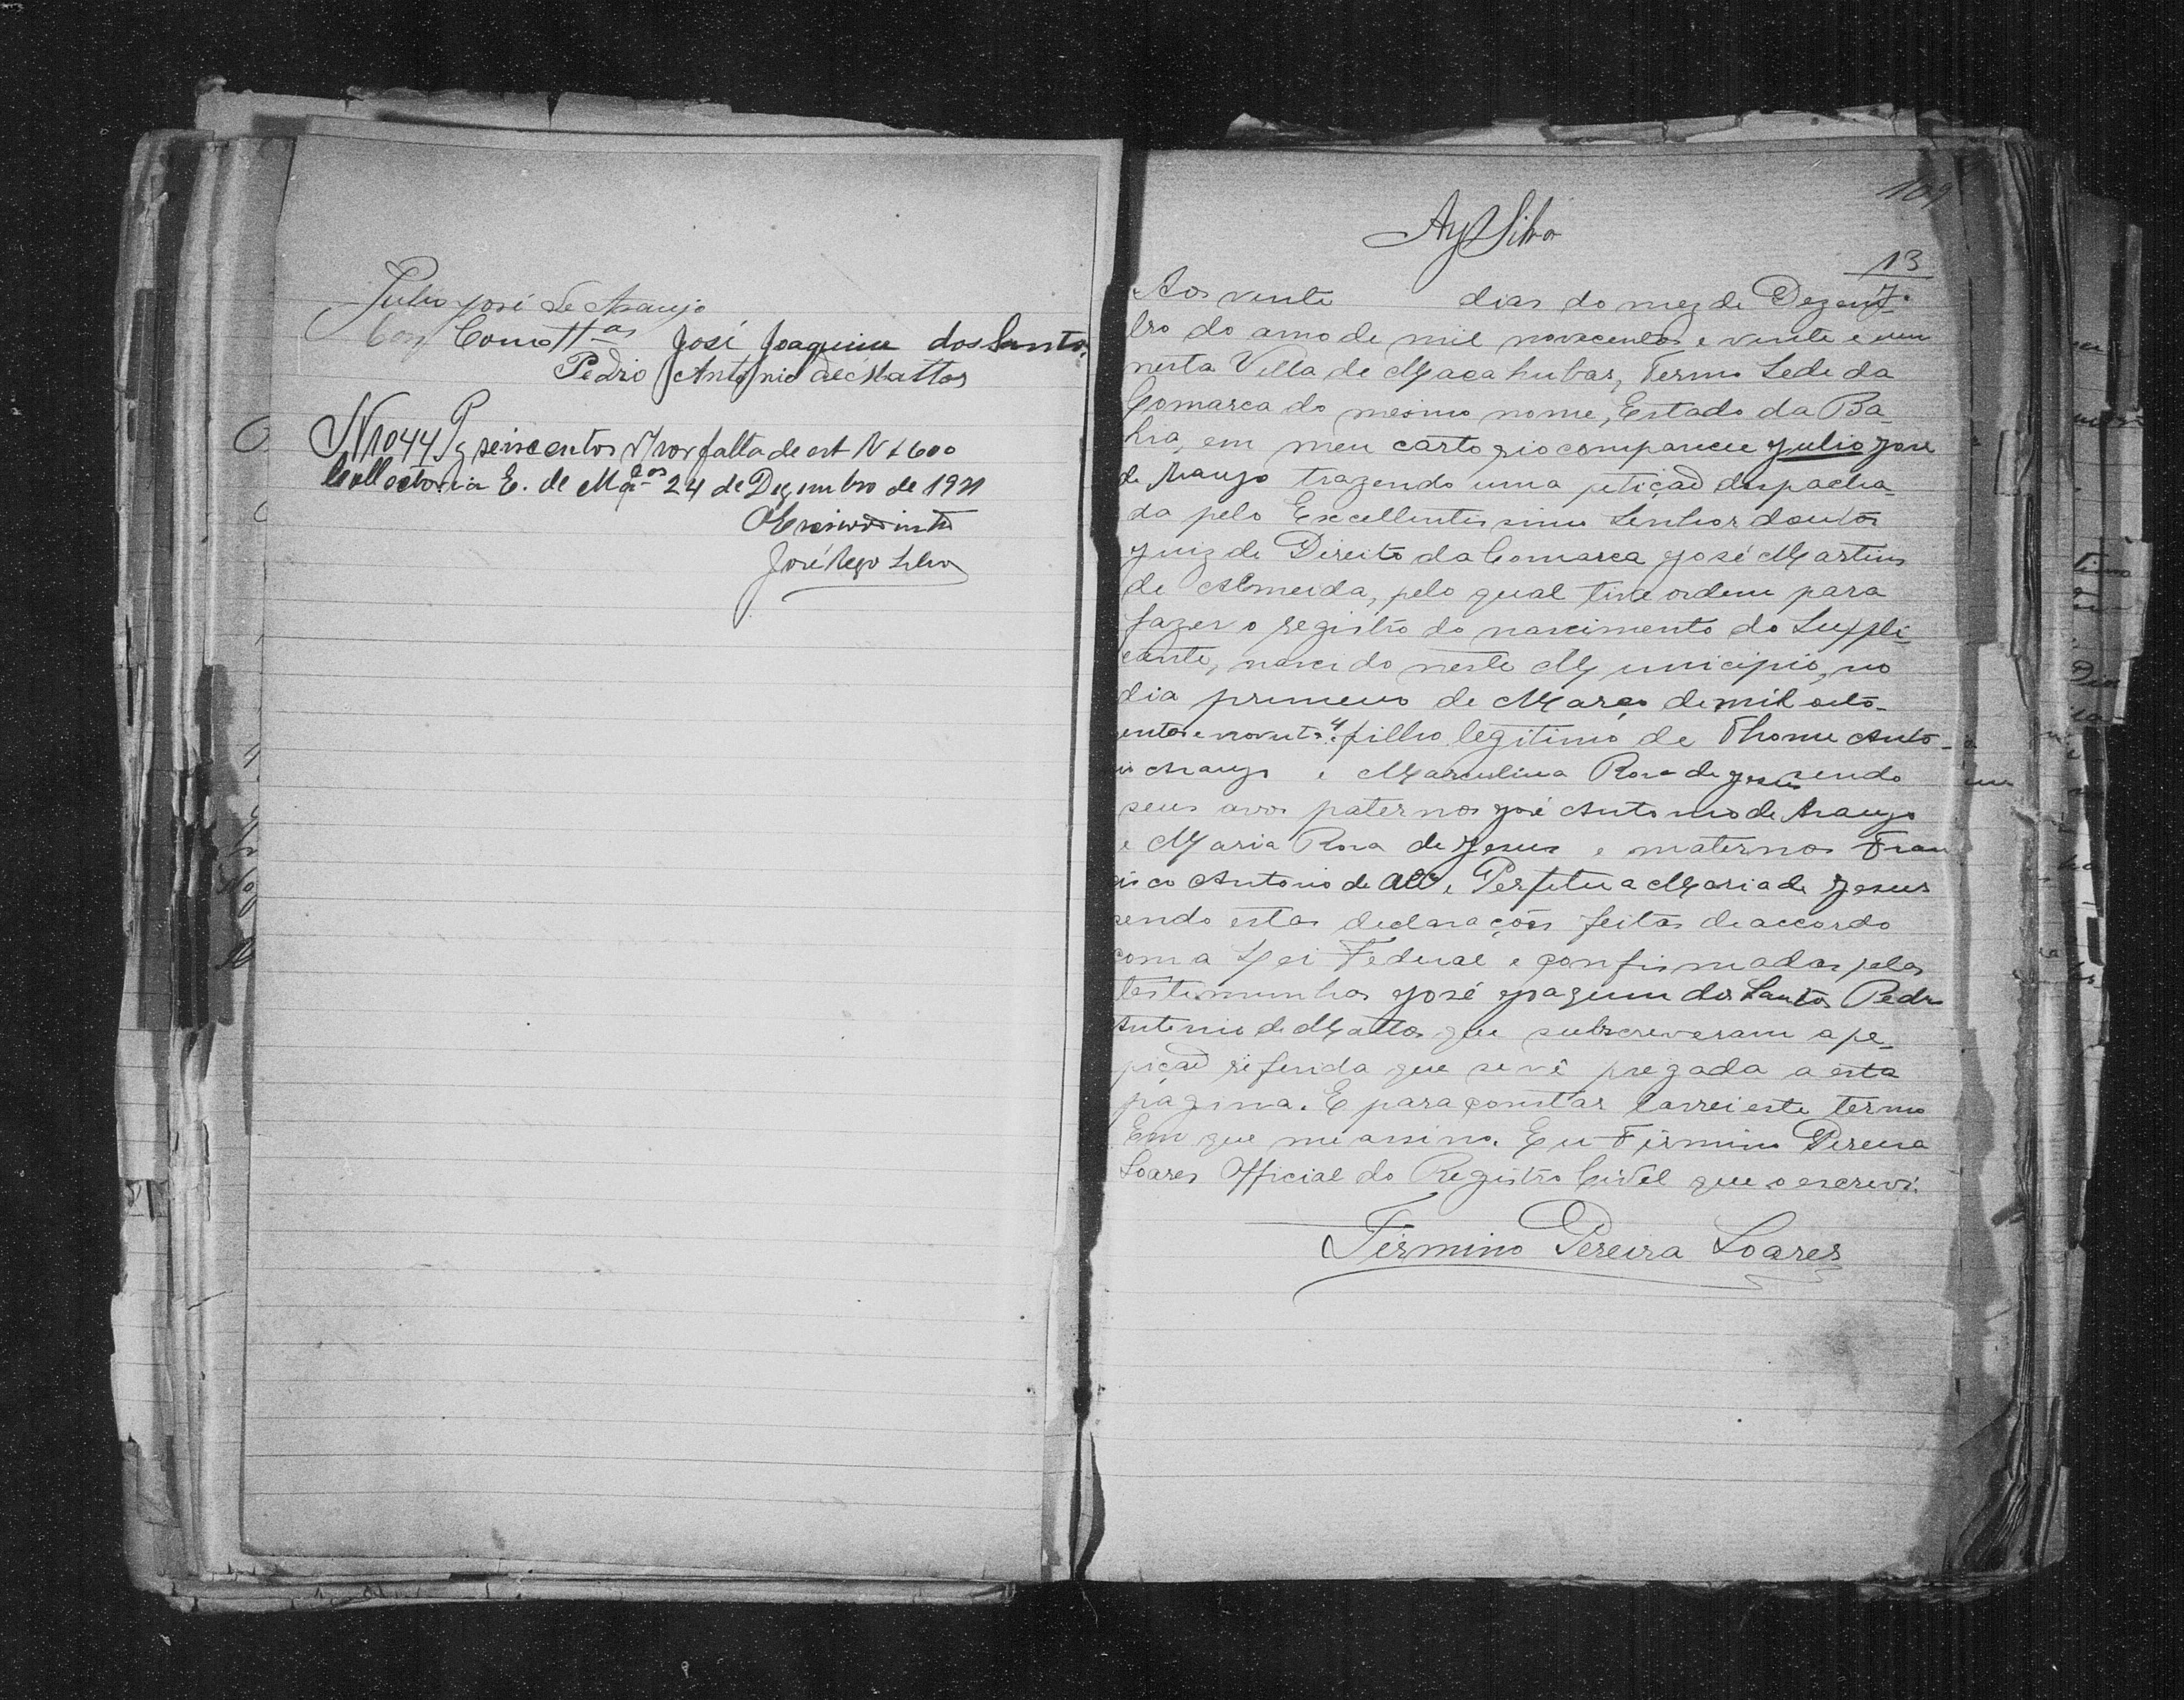 Julio José de Araujo
Como ttas José Joaquim dos Santos
Pedro Antonio de Mattos
N 1044 Pg seiscentos rs por falta de est N 600
Collectoria E. de Macas 24 de Dezembro de 1921
O Escrivão int
José Rego Silva
109
Ay Silva
13
7.
Aos vinte dias do mez de Dezem
bro do anno de mil novecentos e vinte e um
nesta Villa de Macahubas, Termo Sede da
Comarca do mesmo nome, Estado da Ba-
hia, em meu cartorio compareceu Julio José
de Araujo trazendo uma petição despacha-
da pelo Excellentissimo Senhor doutor
Juiz de Direito da Comarca José Martins
de Almeida, pelo qual tive ordem para
fazer o registro do nascimento do Suppli-
cante, nascido neste Municipio, no
dia primeiro de Março de mil oito-
centos e noventa 4. filho legitimo de Thome Anto-
nio Araujo e Marculina Rosa de Jesus sendo
seus avos paternos José Antonio de Araujo
e Maria Rosa de Jesus e maternos Fran
cisco Antonio de Alm e Perpetua Maria de Jesus
sendo estas declarações feitas de accordo
com a Lei Federal e confirmadas pelas
testimunhas José Joaquim dos Santos Pedro
Antonio de Mattos que subscreveram a pe-
tição referida que se vê pregada a esta
pagina. E para constar lavrei este termo
Em que me assino. Eu Firmino Pereira
Soares Official do Registro Civil que o escrevi.
Firmino Pereira Soares